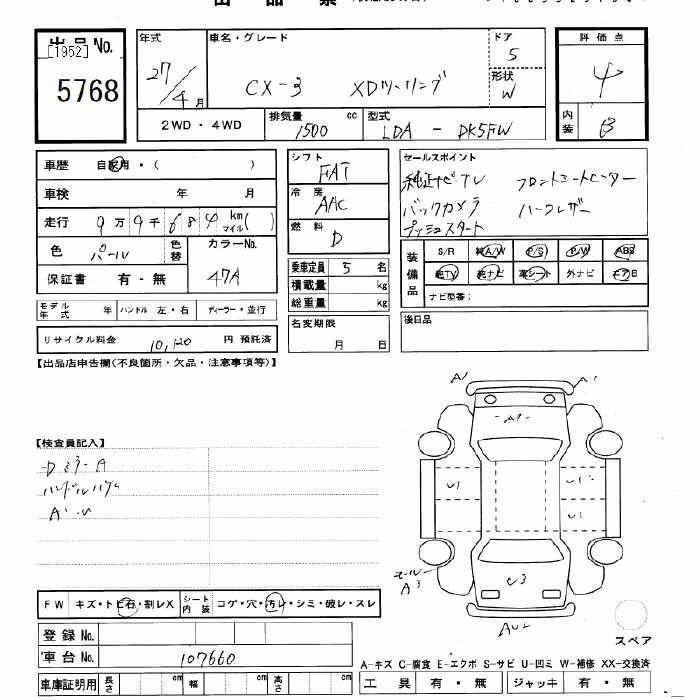 出品No.
[1952]
5768
年式
27/4月
車名・グレード
CX-3 XDツーリング
ドア
5
形状
W
評価点
4
内装
B
2WD・4WD
排気量
1500 cc
型式
LDA - DK5FW
車歴 自家用・( )
車検 年 月
走行 9万9千684 km マイル( )
色 パール 色替
カラーNo.
47A
保証書 有・無
モデル年式 年 ハンドル 左・右 ディーラー・並行
リサイクル料金 10,120 円 預託済
シフト
FAT
冷房
AAC
燃料
D
乗車定員 5 名
積載量 kg
総重量 kg
名変期限
月 日
セールスポイント
純正ナビTV フロントシートヒーター
バックカメラ ハーフレザー
プッシュスタート
装備品
S/R 純A/W P/S P/W ABS
純TV 純ナビ 革シート 外ナビ エアB
ナビ型番:
後日品
【出品店申告欄(不良箇所・欠品・注意事項等)】
【検査員記入】
DミラーA
ハンドルハゲ
A・U
A1
A1
A1
U1
U1
U1
A3
U3
AU2
スペア
FW キズ・トビ石・割レX シート内装 コゲ・穴・汚レ・シミ・破レ・スレ
登録No.
車台No. 107660
車庫証明用 長さ cm 幅 cm 高さ cm
A-キズ C-腐食 E-エクボ S-サビ U-凹ミ W-補修 XX-交換済
工具 有・無 ジャッキ 有・無